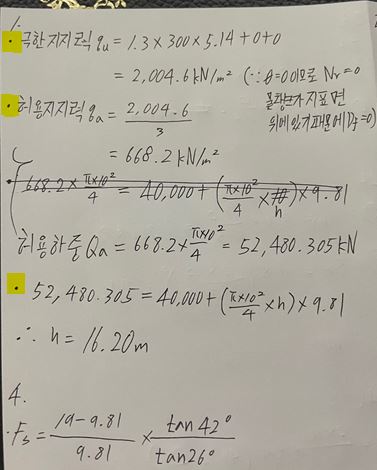 1.
• 극한지지력 qu = 1.3×300×5.14+0+0
= 2,004.6kN/m² (∵ φ=0이므로 Nr=0
물탱크가 지표면
위에 있기 때문에 Df=0)
• 허용지지력 qa = 2,004.6/3
= 668.2kN/m²
668.2×π×10²/4 = 40,000+(π×10²/4×h)×9.81
허용하중 Qa = 668.2×π×10²/4 = 52,480.305kN
• 52,480.305 = 40,000+(π×10²/4×h)×9.81
∴ h = 16.20m
4.
• Fs = 19-9.81/9.81 × tan42°/tan26°